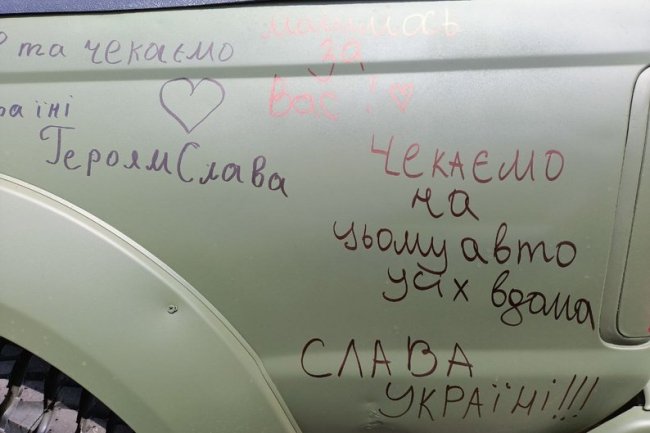 та чекаємо
аїні
Героям Слава
молимось
за
Вас!
Чекаємо
на
цьому авто
усіх вдома
СЛАВА
УКРАЇНІ!!!